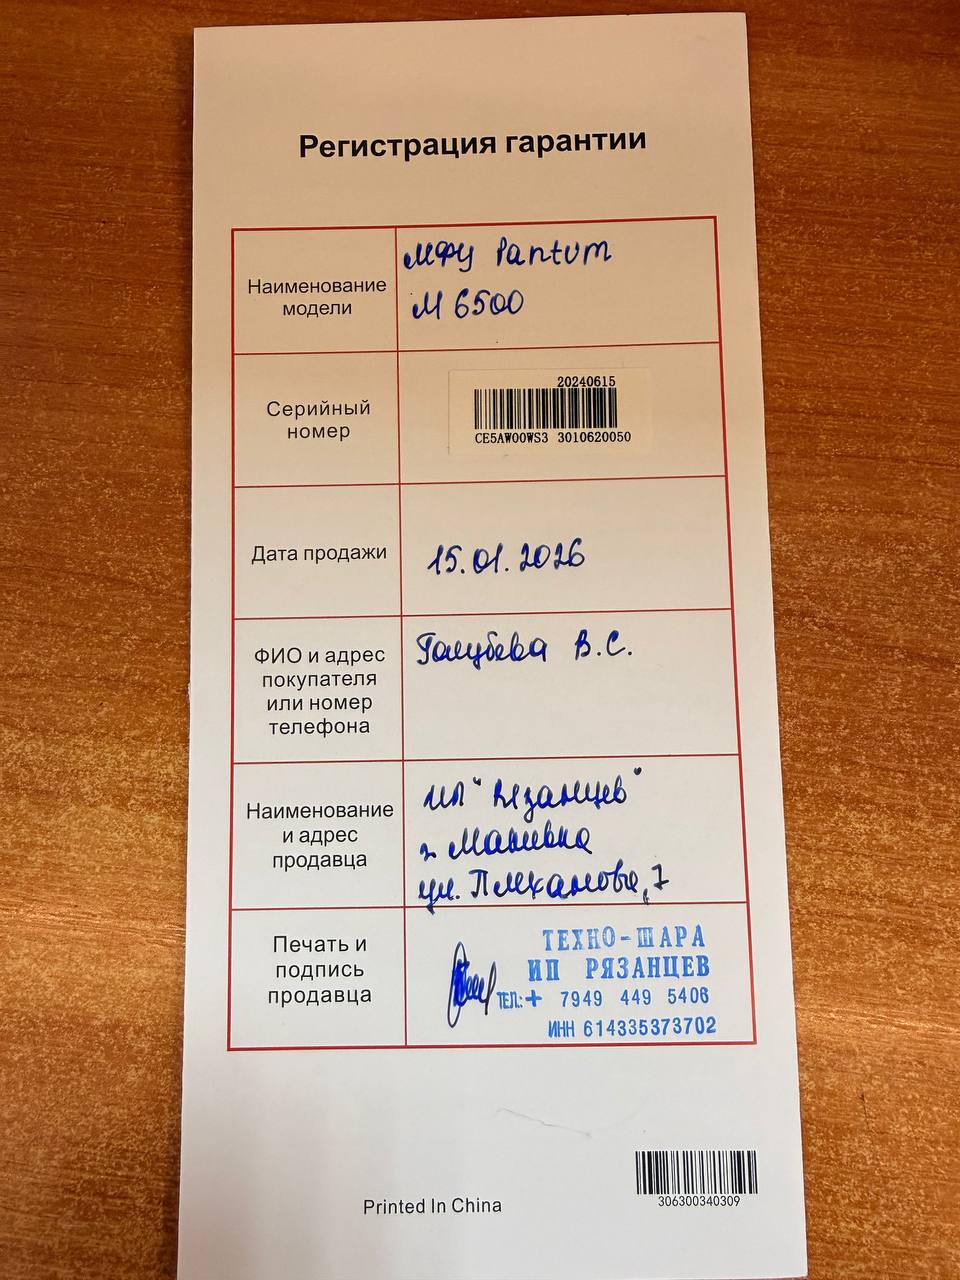 Регистрация гарантии
Наименование
модели
МФУ Pantum
М 6500
Серийный
номер
20240615
CE5AW00WS3 3010620050
Дата продажи
15.01.2026
ФИО и адрес
покупателя
или номер
телефона
Голубева В.С.
Наименование
и адрес
продавца
ИП "Рязанцев"
г. Макеевка
ул. Плеханова, 7
Печать и
подпись
продавца
ТЕХНО-ШАРА
ИП РЯЗАНЦЕВ
ТЕЛ.:+ 7949 449 5406
ИНН 614335373702
306300340309
Printed In China